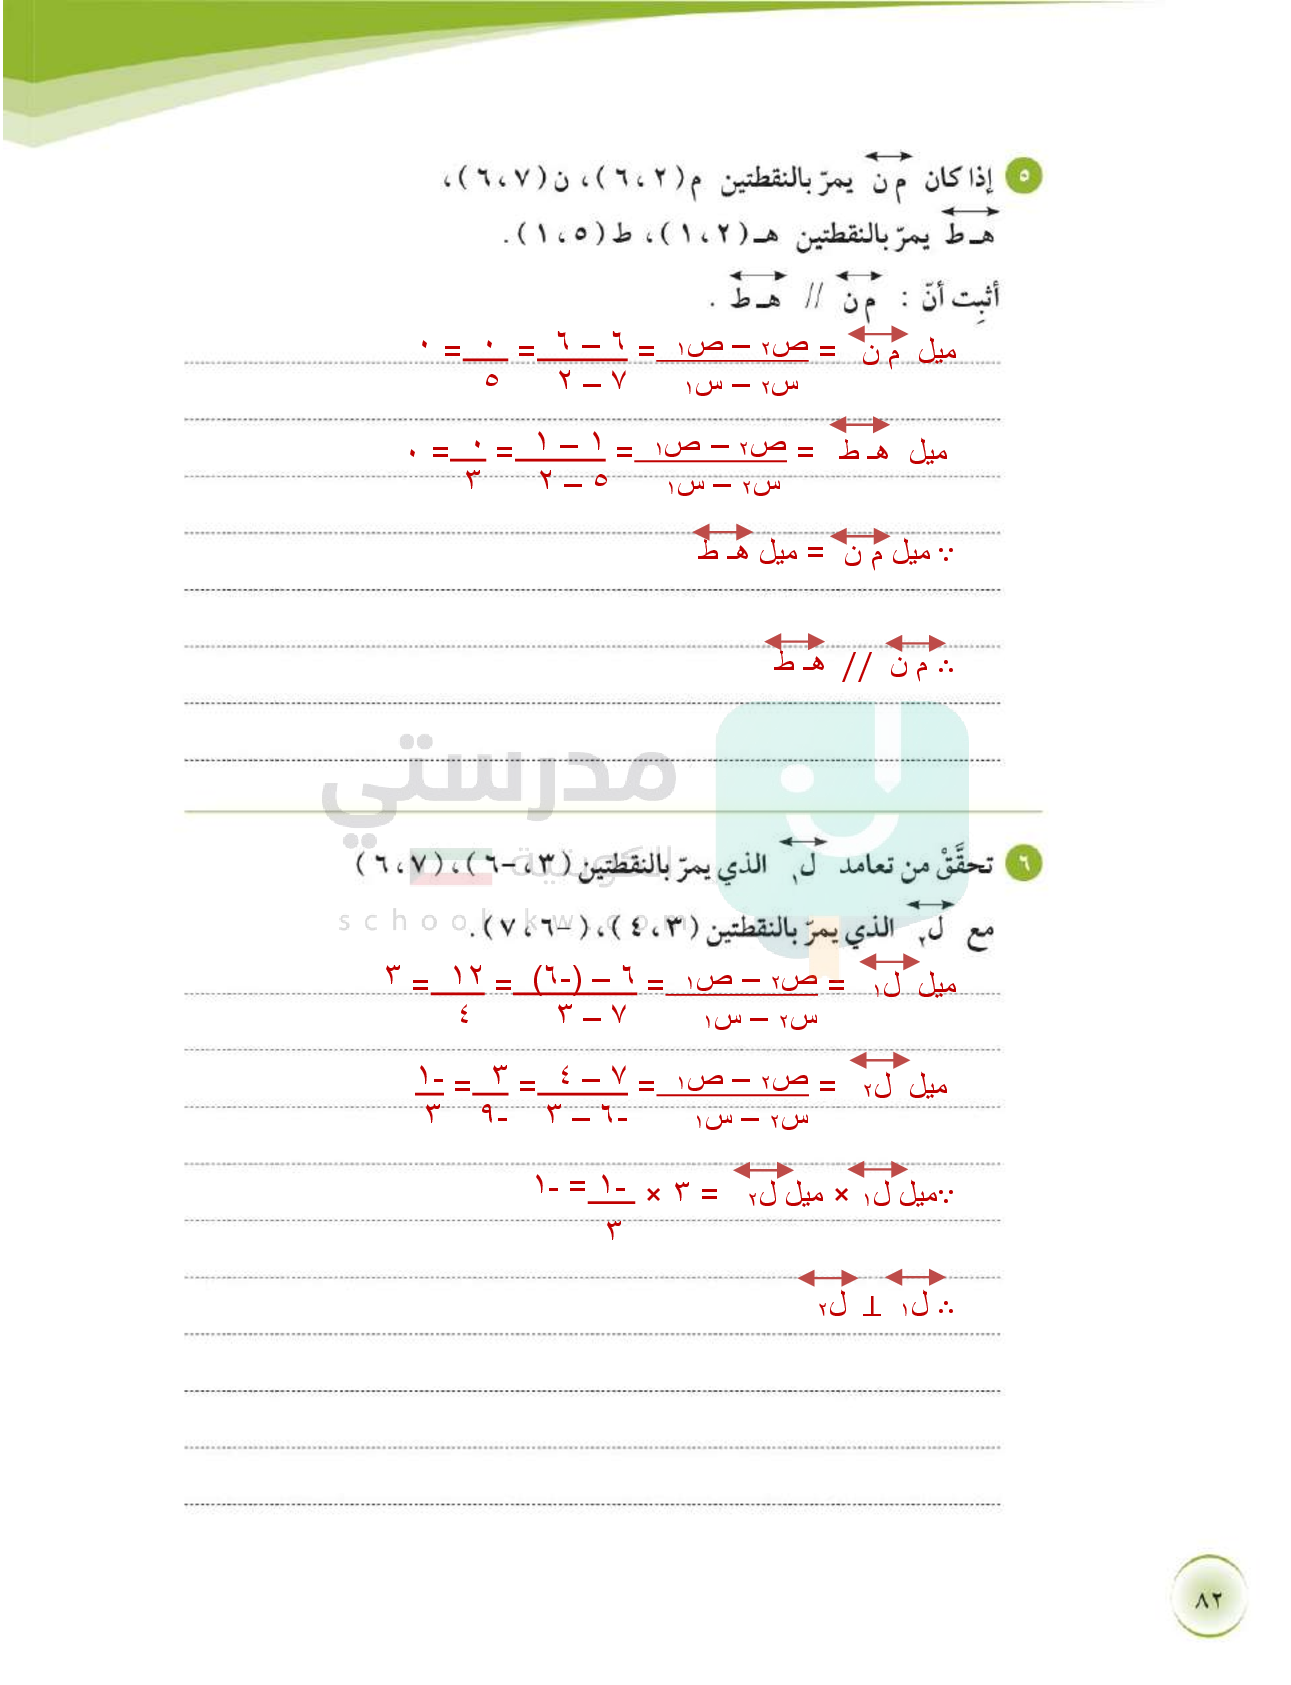 ٥ إذا كان م ن يمرّ بالنقطتين م (٢ ، ٦) ، ن (٧ ، ٦) ،
هـ ط يمرّ بالنقطتين هـ (٢ ، ١) ، ط (٥ ، ١) .
أثبِت أنّ : م ن // هـ ط .
ميل م ن = (ص٢ – ص١)/(س٢ – س١) = (٦ – ٦)/(٧ – ٢) = ٠/٥ = ٠
ميل هـ ط = (ص٢ – ص١)/(س٢ – س١) = (١ – ١)/(٥ – ٢) = ٠/٣ = ٠
∵ ميل م ن = ميل هـ ط
∴ م ن // هـ ط
مدرستي
الكويتية
school-kw.com
٦ تحقَّقْ من تعامد ل١ الذي يمرّ بالنقطتين (٣ ، -٦) ، (٧ ، ٦)
مع ل٢ الذي يمرّ بالنقطتين (٣ ، ٤) ، (-٦ ، ٧) .
ميل ل١ = (ص٢ – ص١)/(س٢ – س١) = (٦ – (-٦))/(٧ – ٣) = ١٢/٤ = ٣
ميل ل٢ = (ص٢ – ص١)/(س٢ – س١) = (٧ – ٤)/(-٦ – ٣) = ٣/-٩ = -١/٣
∵ ميل ل١ × ميل ل٢ = ٣ × -١/٣ = -١
∴ ل١ ⊥ ل٢
٨٢